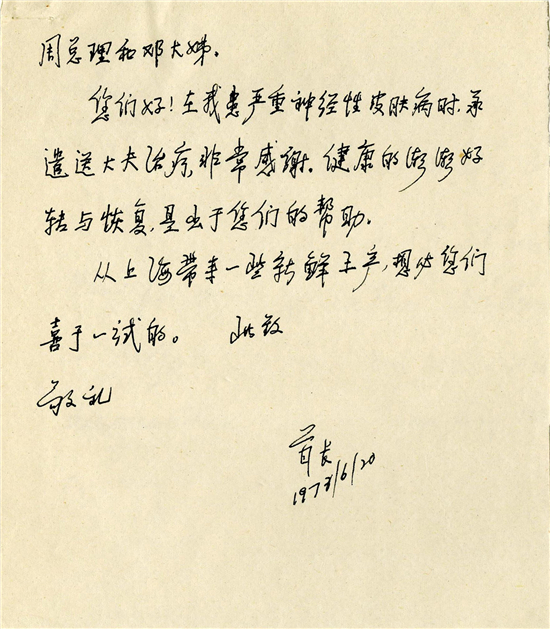 周总理和邓大姊。
您们好！在我患严重神经性皮肤病时,承
遣送大夫治疗,非常感谢。健康的渐渐好
转与恢复,是出于您们的帮助。
从上海带来一些新鲜土产,想必您们
喜于一试的。 此致
敬礼